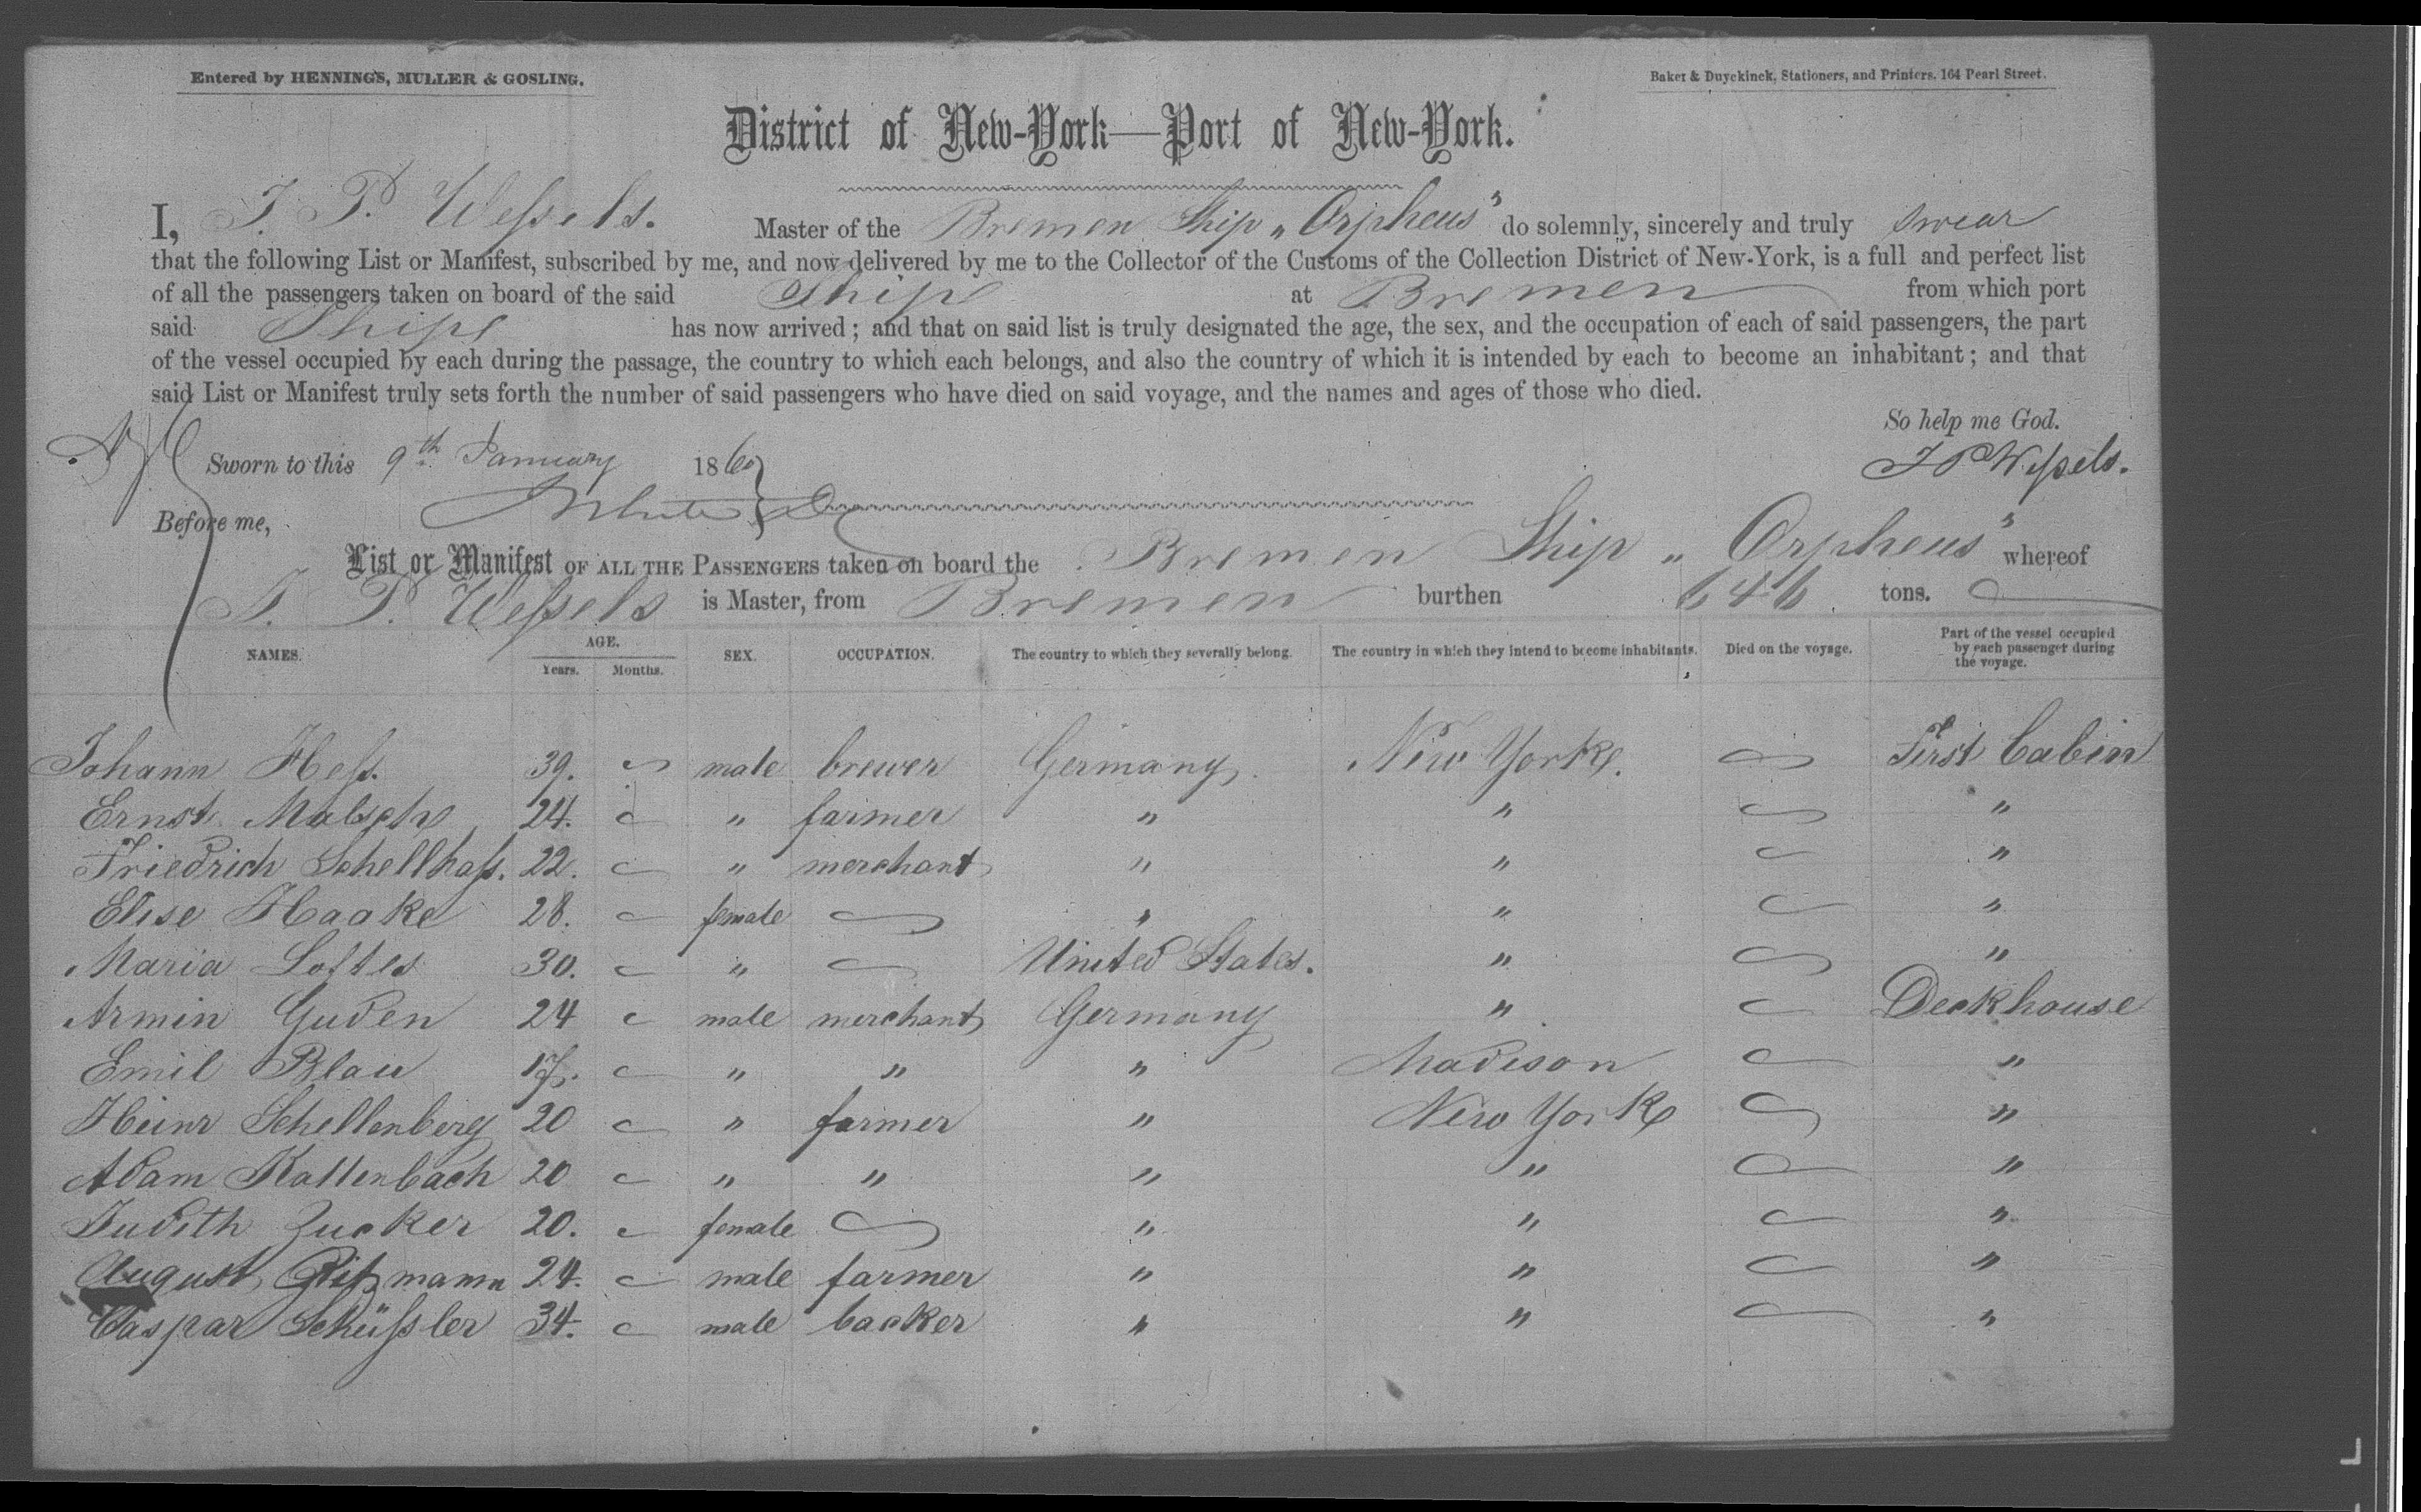 Entered by HENNINGS, MULLER & GOSLING.
Baker & Duyckinck, Stationers, and Printers, 164 Pearl Street.
District of New-York—Port of New-York.
I, J. P. Weſsels. Master of the Bremen Ship „Orpheus" do solemnly, sincerely and truly swear
that the following List or Manifest, subscribed by me, and now delivered by me to the Collector of the Customs of the Collection District of New-York, is a full and perfect list
of all the passengers taken on board of the said Ship at Bremen from which port
said Ship has now arrived; and that on said list is truly designated the age, the sex, and the occupation of each of said passengers, the part
of the vessel occupied by each during the passage, the country to which each belongs, and also the country of which it is intended by each to become an inhabitant; and that
said List or Manifest truly sets forth the number of said passengers who have died on said voyage, and the names and ages of those who died.
So help me God.
Sworn to this 9th January 1860 J P Weſsels.
Before me,
List or Manifest OF ALL THE PASSENGERS taken on board the Bremen Ship „Orpheus" whereof
J. P. Weſsels is Master, from Bremen burthen 646 tons.
NAMES. AGE. Years. Months. SEX. OCCUPATION. The country to which they severally belong. The country in which they intend to become inhabitants. Died on the voyage. Part of the vessel occupied by each passenger during the voyage.
Johann Heſs. 39. male brewer Germany. New York. First Cabin
Ernst 24. " farmer " " "
Friedrich Schellhaſs. 22. " merchant " " "
Elise Haake 28. female " " "
Maria 30. " United States. " "
Armin Guden 24 male merchant Germany " Deckhouse
Emil Blau 17. " " " Madison "
Heinr Schellenberg 20 " farmer " New York "
Adam Kaltenbach 20 " " " " "
Judith Zucker 20. female " " "
August 24. male farmer " " "
Caspar Schüſsler 34. male backer " " "